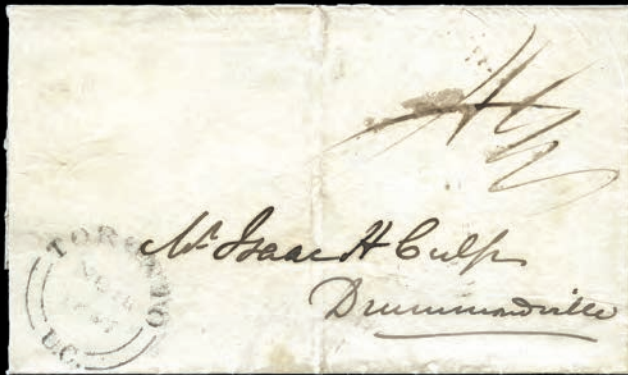 4½
Mr Isaac H Culp
Drummondville
TORONTO
U.C.